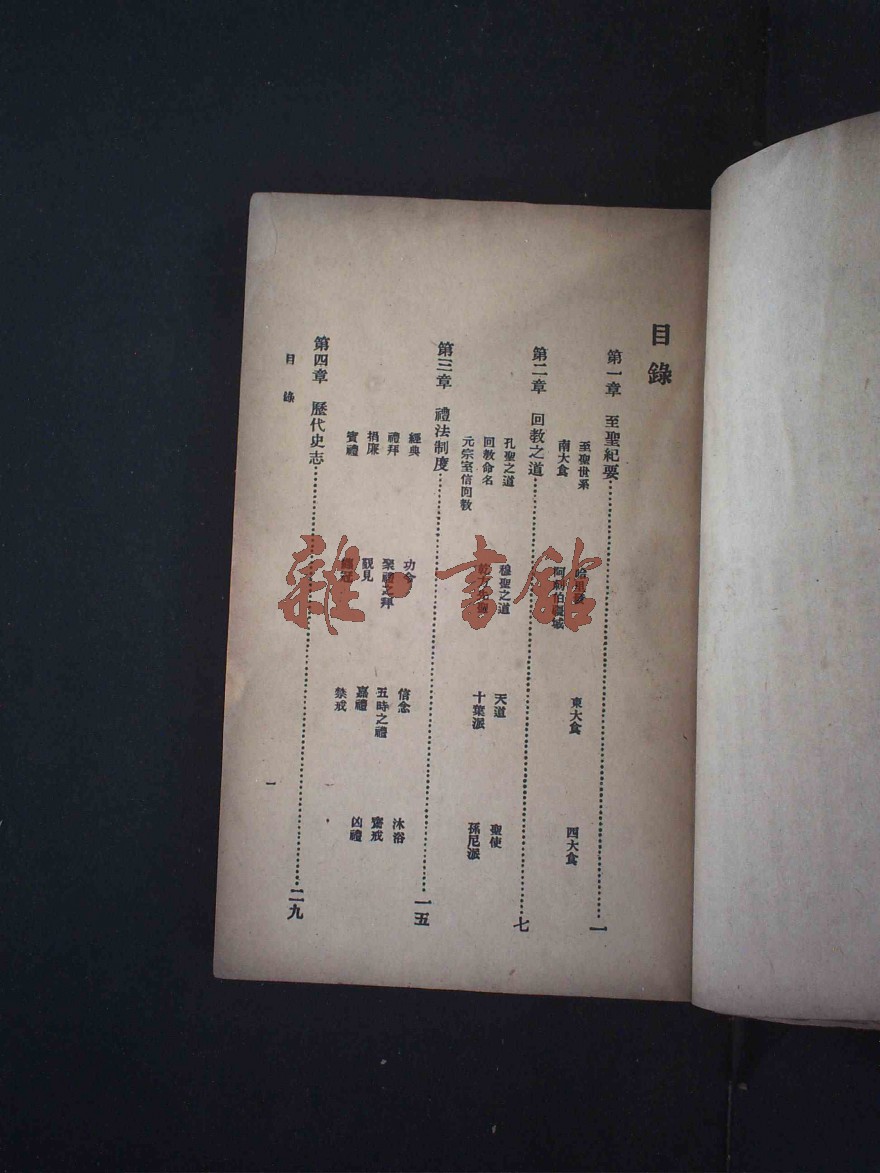 目錄
第一章 至聖紀要 一
至聖世系 哈里發 東大食 四大食
南大食 阿剌伯
第二章 回教之道 七
孔聖之道 穆聖之道 天道 聖使
回教命名 十葉派 孫尼派
元宗室信回教
第三章 禮法制度 一五
經典 功令 信念 沐浴
禮拜 聚禮之拜 五時之禮 齋戒
捐廉 覲見 嘉禮 凶禮
賓禮 禁戒
第四章 歷代史志 二九
目錄 一
雜·書館